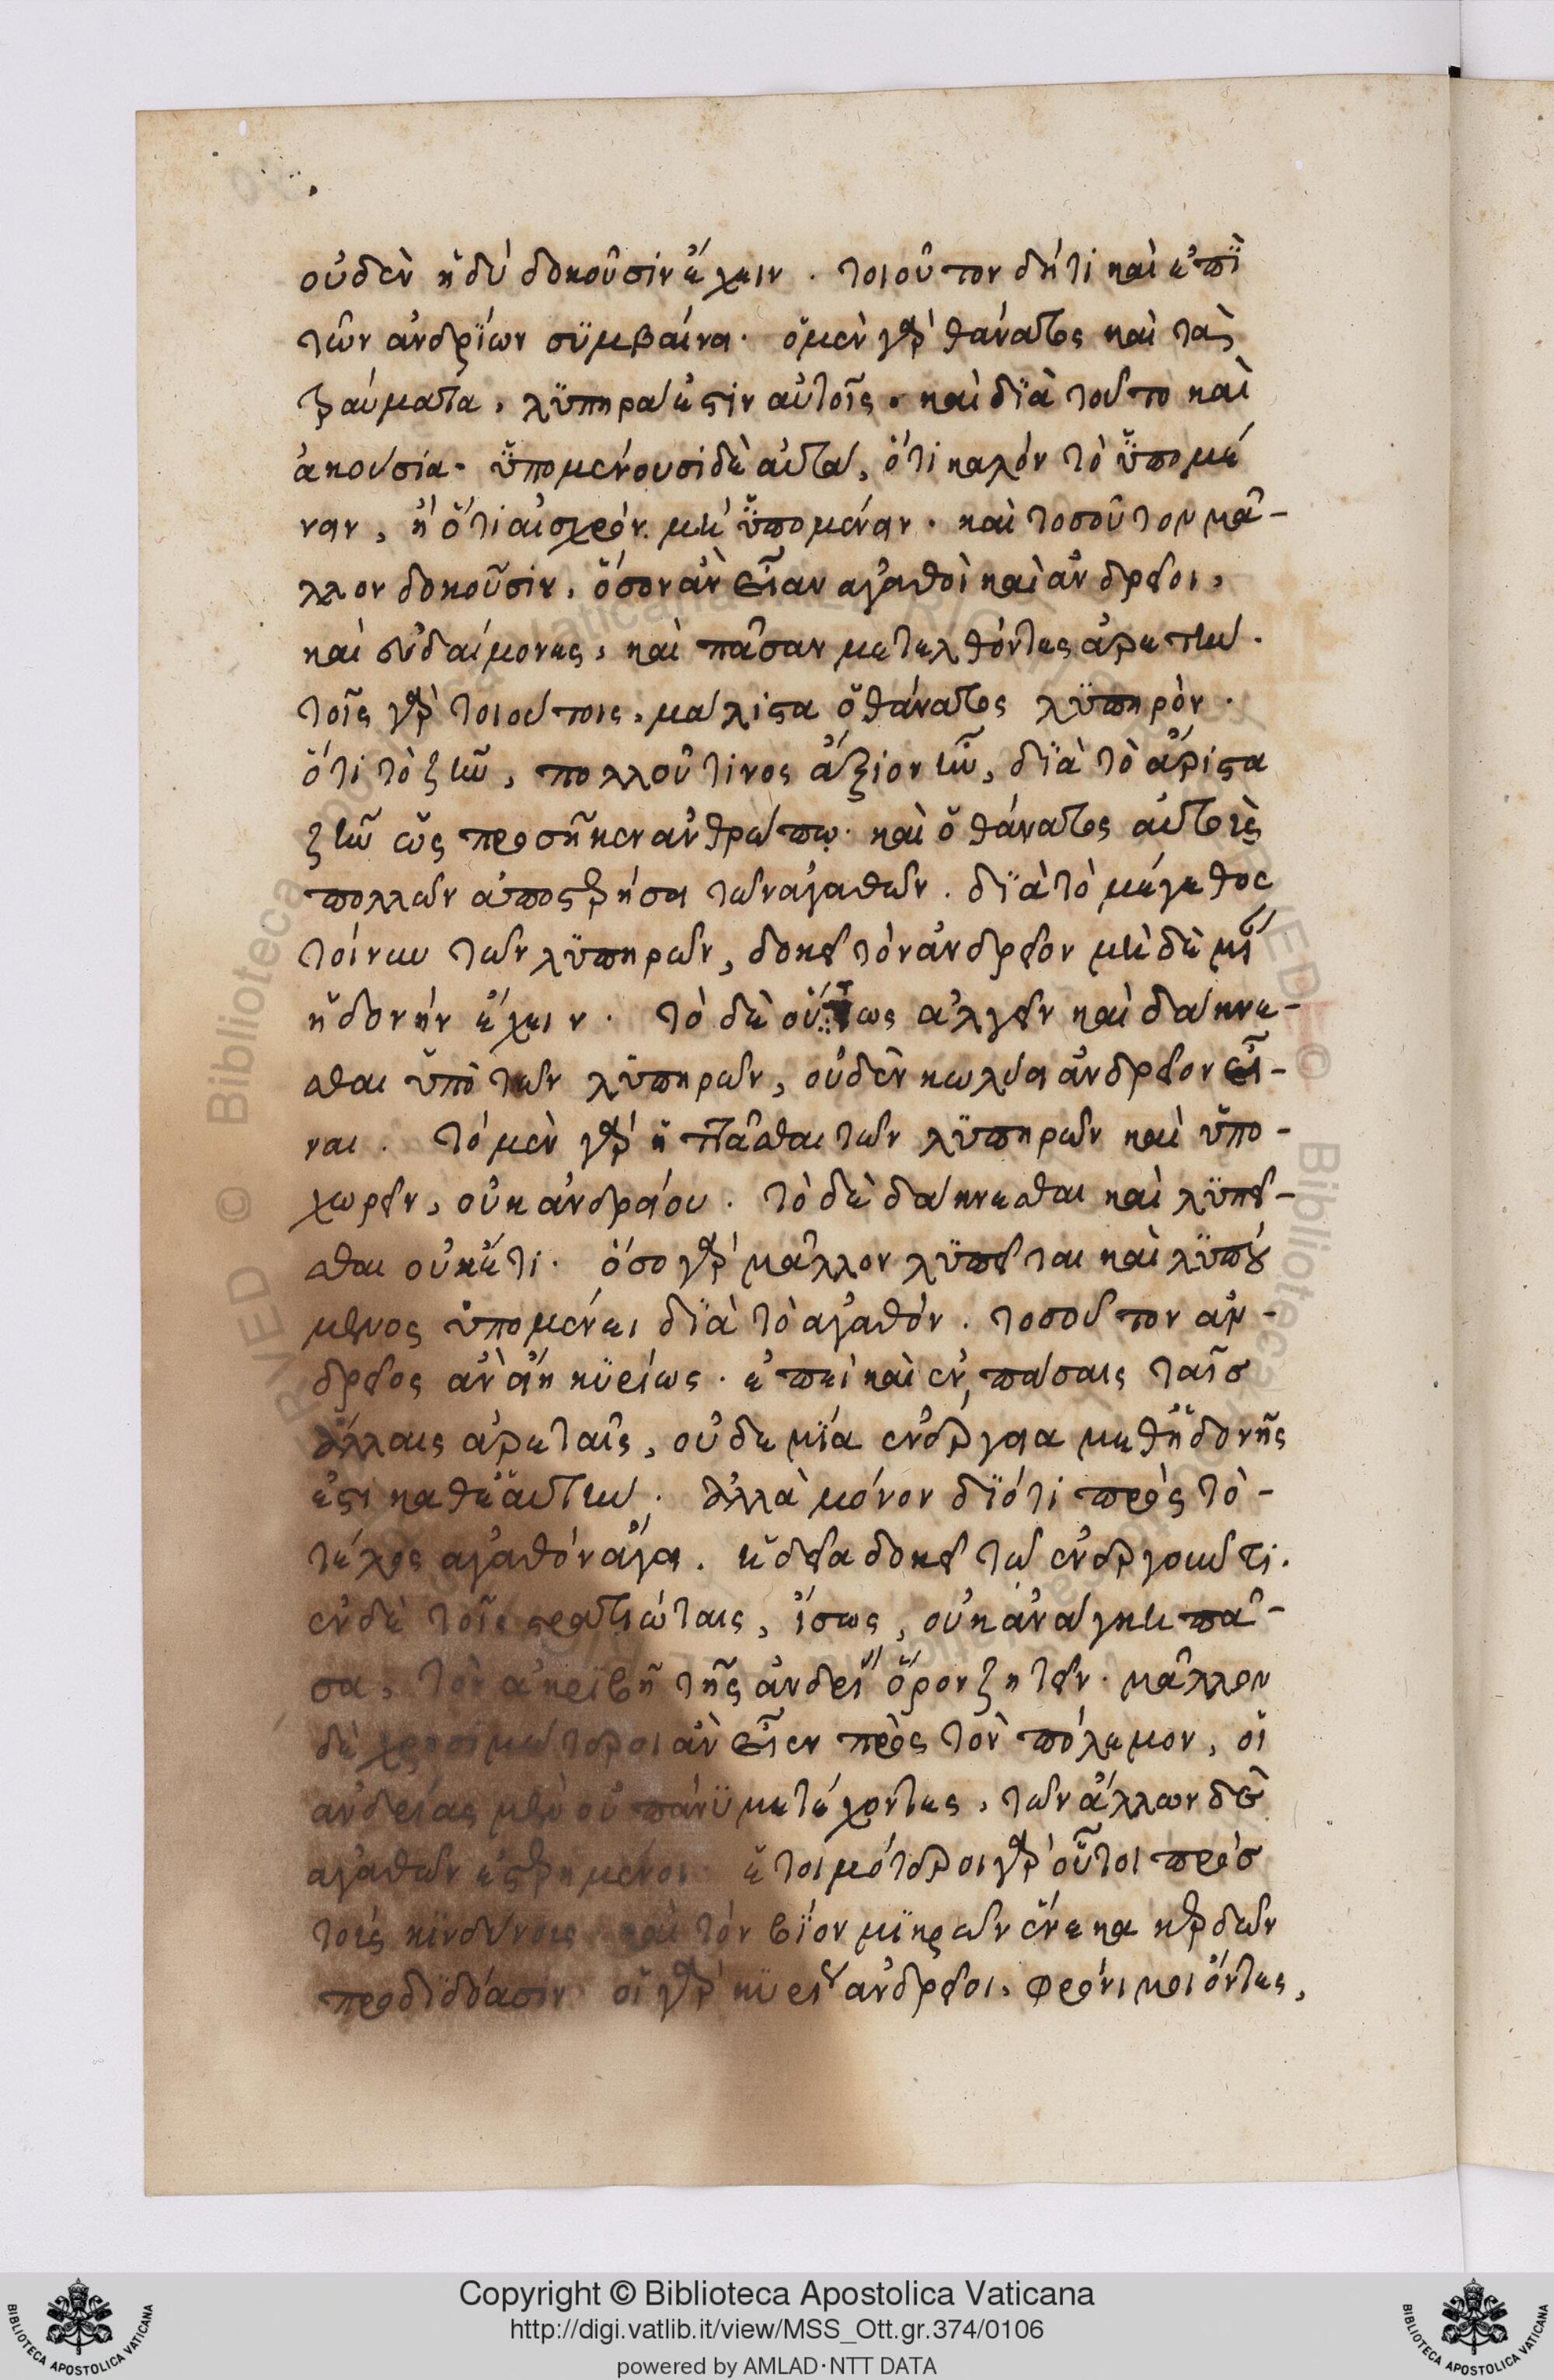 οὐδὲν ἡδὺ δοκοῦσιν ἔχειν. τοιοῦτον δή τι καὶ ἐπὶ
τῶν ἀνδρίων συμβαίνει. ὁ μὲν γὰρ θάνατος καὶ τὰ
τραύματα, λυπηρά ἐστιν αὐτοῖς. καὶ διὰ τοῦτο καὶ
ἀκούσια. ὑπομένουσι δὲ αὐτά, ὅτι καλόν τὸ ὑπομέ
νειν, ἢ ὅτι αἰσχρόν μὴ ὑπομένειν. καὶ τοσοῦτον μᾶ-
λλον δοκοῦσιν, ὅσον ἂν εἶεν ἀγαθοὶ καὶ ἀνδρεῖοι,
καὶ εὐδαίμονες, καὶ πᾶσαν μετελθόντες ἀρετήν.
τοῖς γὰρ τοιούτοις, μάλιστα ὁ θάνατος λυπηρὸν.
ὅτι τὸ ζῆν, πολλοῦ τινος ἄξιον ἦν, διὰ τὸ ἄριστα
ζῆν ὡς προσῆκεν ἀνθρώπῳ. καὶ ὁ θάνατος αὐτοὺς
πολλῶν ἀποστερήσει τῶν ἀγαθῶν. διὰ τὸ μέγεθος
τοίνυν τῶν λυπηρῶν, δοκεῖ τὸν ἀνδρεῖον μὴ δὲ μίαν
ἡδονήν ἔχειν. τὸ δὲ οὕτως ἀλγεῖν καὶ δάκνε-
σθαι ὑπὸ τῶν λυπηρῶν, οὐδὲν κωλύει ἀνδρεῖον εἶ-
ναι. τό μὲν γὰρ ἡττᾶσθαι τῶν λυπηρῶν καὶ ὑπο-
χωρεῖν, οὐκ ἀνδρείου. τὸ δὲ δάκνεσθαι καὶ λυπεῖ-
σθαι οὐκέτι. ὅσο γὰρ μᾶλλον λυπεῖται καὶ λυπού
μενος ὑπομένει διὰ τὸ ἀγαθόν. τοσοῦτον ἀν-
δρεῖος ἂν εἴη κυρίως. ἐπεὶ καὶ ἐν πάσαις ταῖς
ἄλλαις ἀρεταῖς, οὐδεμία ἐνέργεια μεθ' ἡδονῆς
ἐστι καθ' ἑαυτήν. ἀλλὰ μόνον διότι πρὸς τὸ-
τέλος ἀγαθόν ἄγει. ἡδεῖα δοκεῖ τῷ ἐνεργοῦντι.
ἐν δὲ τοῖς στρατιώταις, ἴσως, οὐκ ἀνάγκη πᾶ-
σα, τὸν ἀκριβῆ τῆς ἀνδρίας ὅρον ζητεῖν. μᾶλλον
δὲ χρησιμώτεροι ἂν εἶεν πρὸς τὸν πόλεμον, οἱ
ἀνδρείας μὲν οὐ πάνυ μετέχοντες, τῶν ἄλλων δὲ
ἀγαθῶν ἐστερημένοι. ἑτοιμότεροι γὰρ οὗτοι πρὸς
τοὺς κινδύνους καὶ τὸν βίον μικρῶν ἕνεκα κερδῶν
προδιδόασιν. οἱ γὰρ κυρίως ἀνδρεῖοι, φρόνιμοι ὄντες,
Copyright © Biblioteca Apostolica Vaticana
http://digi.vatlib.it/view/MSS_Ott.gr.374/0106
powered by AMLAD·NTT DATA